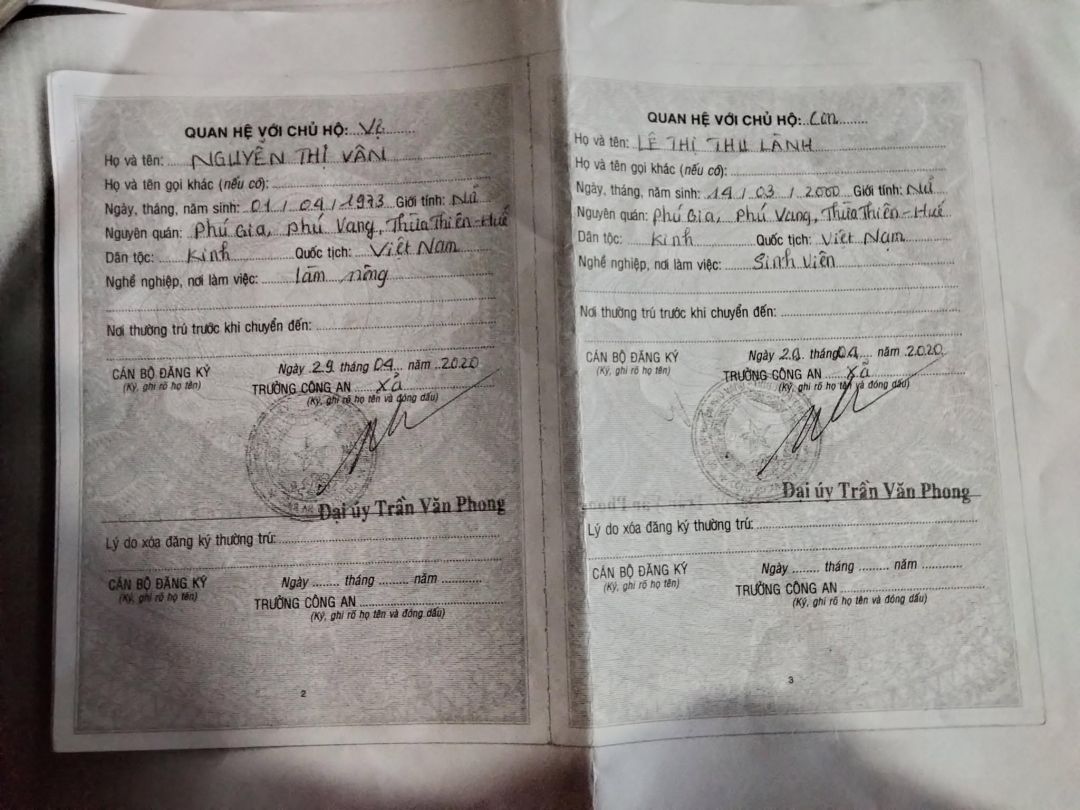 QUAN HỆ VỚI CHỦ HỘ: Vợ
Họ và tên: NGUYỄN THỊ VÂN
Họ và tên gọi khác (nếu có):
Ngày, tháng, năm sinh: 01 / 04 / 1973 Giới tính: Nữ
Nguyên quán: Phú Gia, Phú Vang, Thừa Thiên-Huế
Dân tộc: Kinh Quốc tịch: Việt Nam
Nghề nghiệp, nơi làm việc: làm nông
Nơi thường trú trước khi chuyển đến:
Ngày 29 tháng 04 năm 2020
CÁN BỘ ĐĂNG KÝ
(Ký, ghi rõ họ tên)
TRƯỞNG CÔNG AN xã
(Ký, ghi rõ họ tên và đóng dấu)
Đại úy Trần Văn Phong
Lý do xóa đăng ký thường trú:
CÁN BỘ ĐĂNG KÝ
(Ký, ghi rõ họ tên)
Ngày ........ tháng ......... năm ............
TRƯỞNG CÔNG AN
(Ký, ghi rõ họ tên và đóng dấu)
2
QUAN HỆ VỚI CHỦ HỘ: Con
Họ và tên: LÊ THỊ THU LÀNH
Họ và tên gọi khác (nếu có):
Ngày, tháng, năm sinh: 14 / 03 / 2000 Giới tính: Nữ
Nguyên quán: Phú Gia, Phú Vang, Thừa Thiên-Huế
Dân tộc: Kinh Quốc tịch: Việt Nam
Nghề nghiệp, nơi làm việc: Sinh viên
Nơi thường trú trước khi chuyển đến:
Ngày tháng 04 năm 2020
CÁN BỘ ĐĂNG KÝ
(Ký, ghi rõ họ tên)
TRƯỞNG CÔNG AN xã
(Ký, ghi rõ họ tên và đóng dấu)
Đại úy Trần Văn Phong
Lý do xóa đăng ký thường trú:
CÁN BỘ ĐĂNG KÝ
(Ký, ghi rõ họ tên)
Ngày ........ tháng ......... năm ............
TRƯỞNG CÔNG AN
(Ký, ghi rõ họ tên và đóng dấu)
3